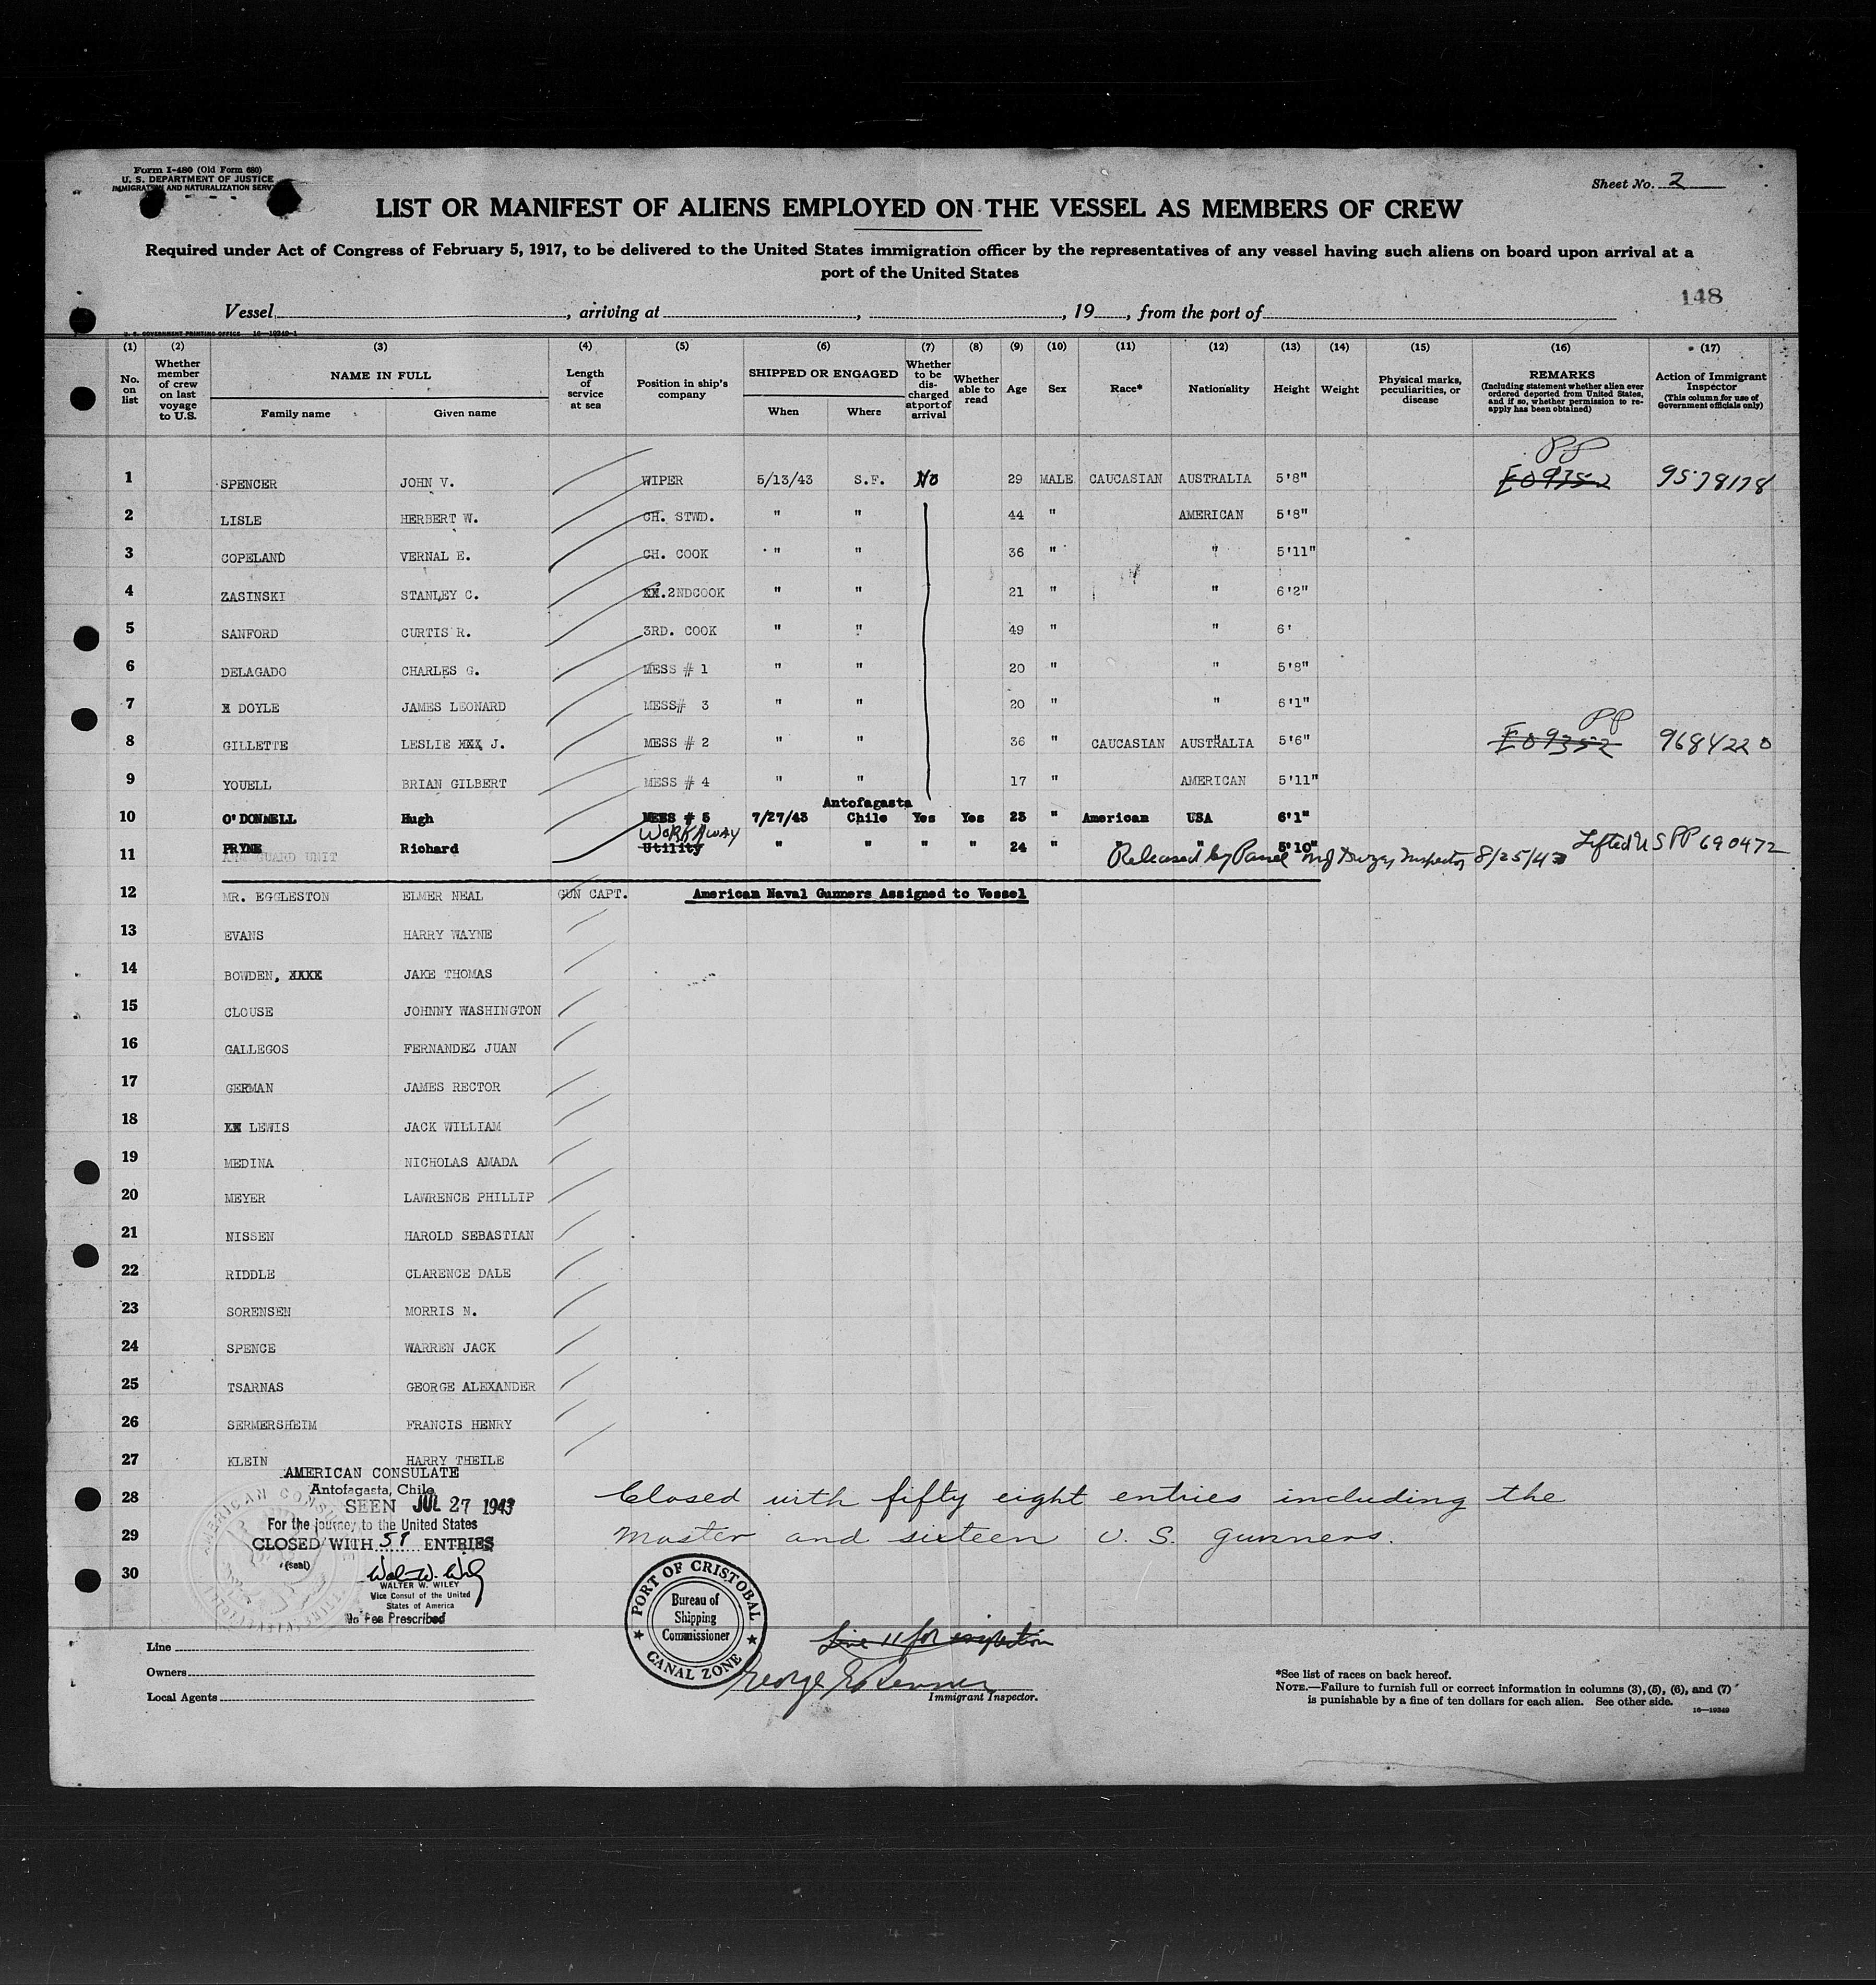 Form I-480 (Old Form 680)
U. S. DEPARTMENT OF JUSTICE
IMMIGRATION AND NATURALIZATION SERV
Sheet No. 2
LIST OR MANIFEST OF ALIENS EMPLOYED ON THE VESSEL AS MEMBERS OF CREW
Required under Act of Congress of February 5, 1917, to be delivered to the United States immigration officer by the representatives of any vessel having such aliens on board upon arrival at a
port of the United States
148
Vessel , arriving at , , 19 , from the port of
U. S. GOVERNMENT PRINTING OFFICE 16—19349-1
(1) (2) (3) (4) (5) (6) (7) (8) (9) (10) (11) (12) (13) (14) (15) (16) (17)
No. on list
Whether member of crew on last voyage to U.S.
NAME IN FULL
Family name
Given name
Length of service at sea
Position in ship's company
SHIPPED OR ENGAGED
When
Where
Whether to be discharged at port of arrival
Whether able to read
Age
Sex
Race*
Nationality
Height
Weight
Physical marks, peculiarities, or disease
REMARKS
(Including statement whether alien ever ordered deported from United States, and if so, whether permission to re-apply has been obtained)
Action of Immigrant Inspector
(This column for use of Government officials only)
PP
1 SPENCER JOHN V. WIPER 5/13/43 S.F. No 29 MALE CAUCASIAN AUSTRALIA 5'8" EO9352 9578178
2 LISLE HERBERT W. CH. STWD. " " 44 " AMERICAN 5'8"
3 COPELAND VERNAL E. CH. COOK " " 36 " " 5'11"
4 ZASINSKI STANLEY C. XX.2NDCOOK " " 21 " " 6'2"
5 SANFORD CURTIS R. 3RD. COOK " " 49 " " 6'
6 DELAGADO CHARLES G. MESS # 1 " " 20 " " 5'8"
7 X DOYLE JAMES LEONARD MESS# 3 " " 20 " " 6'1"
PP
8 GILLETTE LESLIE XXX J. MESS # 2 " " 36 " CAUCASIAN AUSTRALIA 5'6" EO9352 9684220
9 YOUELL BRIAN GILBERT MESS # 4 " " 17 " AMERICAN 5'11"
Antofagasta
10 O'DONNELL Hugh MESS # 5 7/27/43 Chile Yes Yes 23 " American USA 6'1"
WORKAWAY
11 PRYNE Richard Utility " " " " 24 " " " 5'10" Lifted US PP 690472
ARM GUARD UNIT
Released by Panel Inspector 8/25/43
12 MR. EGGLESTON ELMER NEAL GUN CAPT. American Naval Gunners Assigned to Vessel
13 EVANS HARRY WAYNE
14 BOWDEN, XXXX JAKE THOMAS
15 CLOUSE JOHNNY WASHINGTON
16 GALLEGOS FERNANDEZ JUAN
17 GERMAN JAMES RECTOR
18 XX LEWIS JACK WILLIAM
19 MEDINA NICHOLAS AMADA
20 MEYER LAWRENCE PHILLIP
21 NISSEN HAROLD SEBASTIAN
22 RIDDLE CLARENCE DALE
23 SORENSEN MORRIS N.
24 SPENCE WARREN JACK
25 TSARNAS GEORGE ALEXANDER
26 SERMERSHEIM FRANCIS HENRY
27 KLEIN HARRY THEILE
28 Closed with fifty eight entries including the
29 Master and sixteen U. S. gunners.
30
AMERICAN CONSULATE
Antofagasta, Chile
SEEN JUL 27 1943
For the journey to the United States
CLOSED WITH 58 ENTRIES
(seal)
WALTER W. WILEY
Vice Consul of the United
States of America
No Fee Prescribed
PORT OF CRISTOBAL
Bureau of
Shipping
Commissioner
CANAL ZONE
Line 11 for inspection
Line
Owners
Local Agents
Immigrant Inspector.
*See list of races on back hereof.
NOTE.—Failure to furnish full or correct information in columns (3), (5), (6), and (7)
is punishable by a fine of ten dollars for each alien. See other side.
16—19349